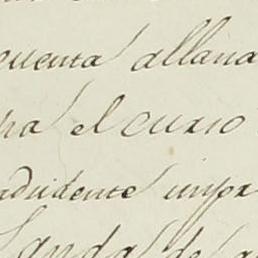 cuenta allana
pa el curso
aduidente impr
landa de a